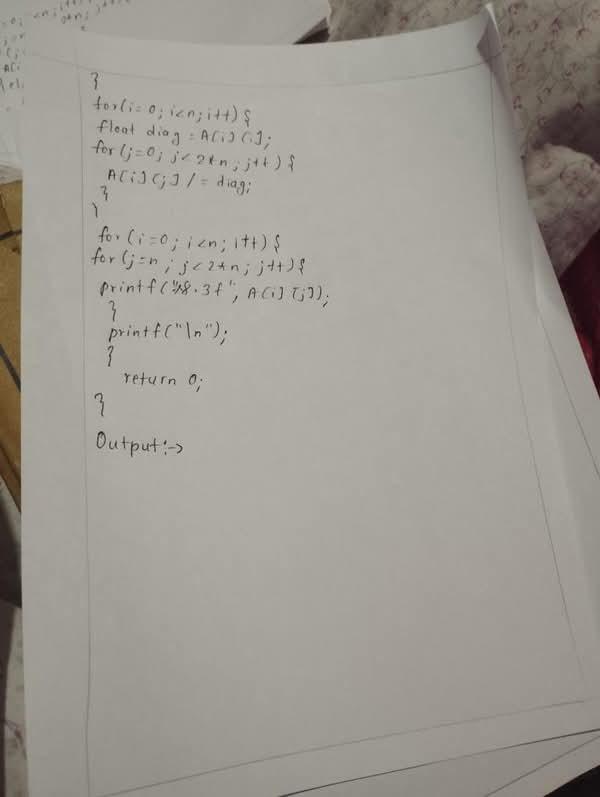 }
for(i=0; i<n; i++) {
float diag = A[i][i];
for(j=0; j<2*n; j++) {
A[i][j] /= diag;
}
}
for(i=0; i<n; i++) {
for(j=n; j<2*n; j++) {
printf("%8.3f", A[i][j]);
}
printf("\n");
}
return 0;
}
Output:→